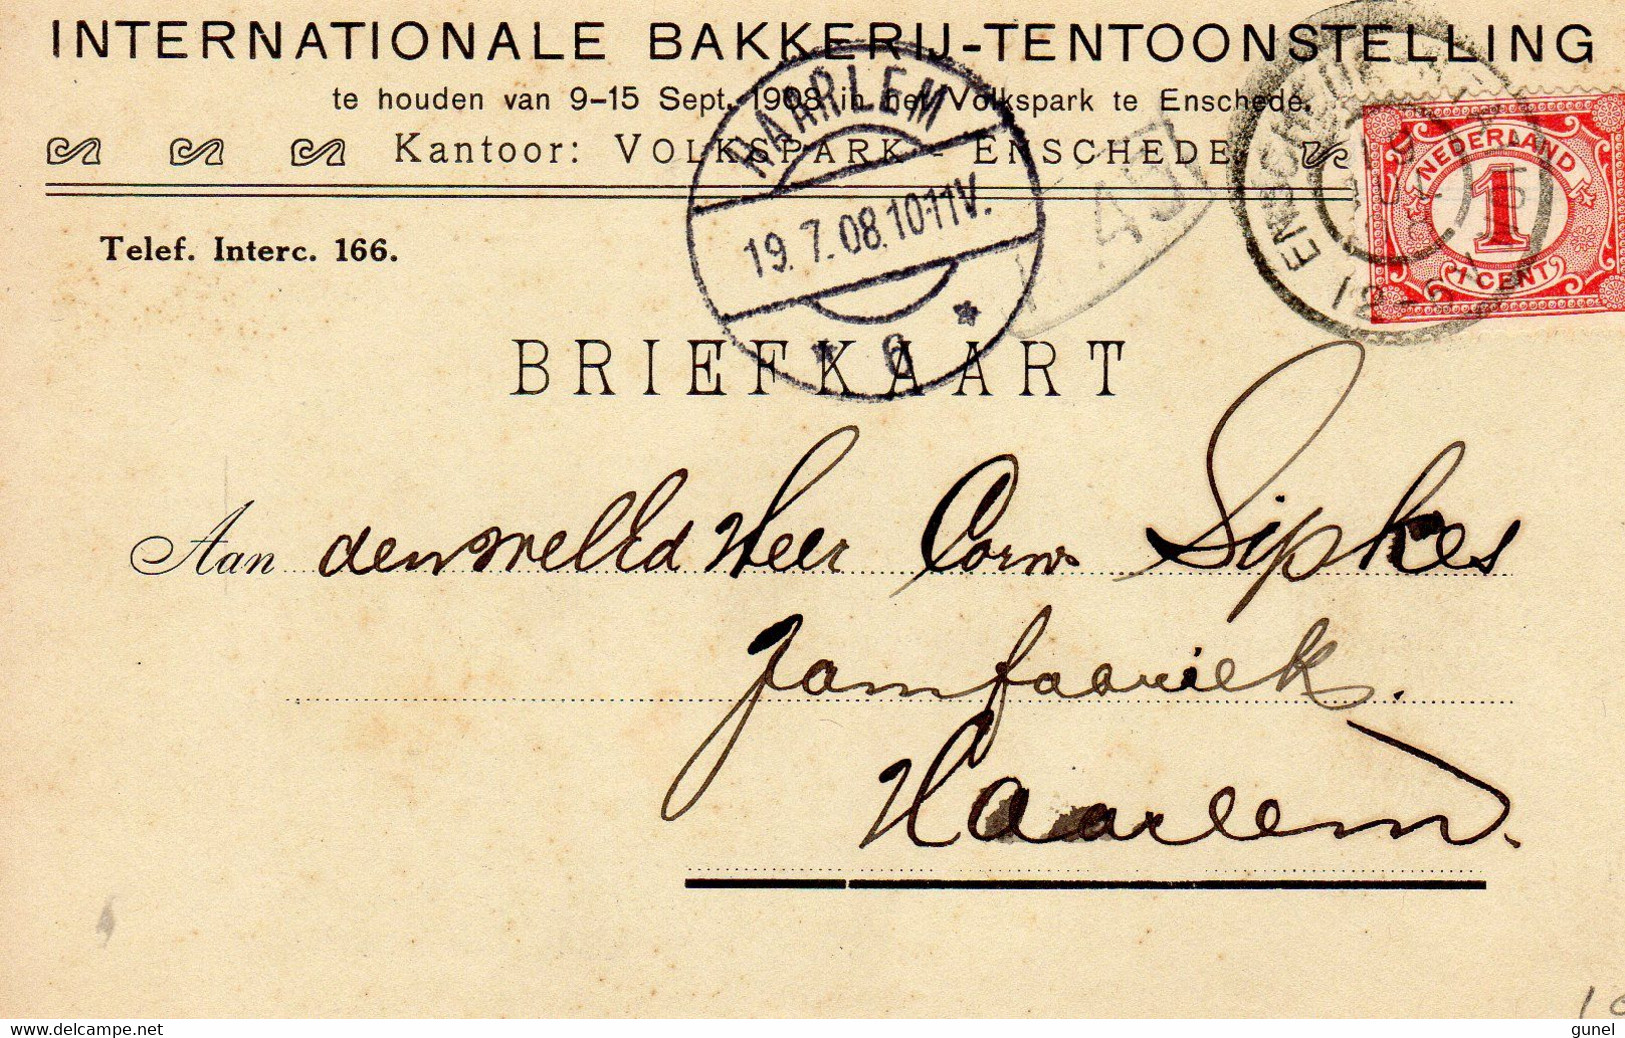 INTERNATIONALE BAKKERIJ-TENTOONSTELLING
te houden van 9-15 Sept. 1908 in het Volkspark te Enschede.
Kantoor: VOLKSPARK - ENSCHEDE.
Telef. Interc. 166.
HAARLEM
19.7.08.10-11V.
6
ENSCHEDE
12-
NEDERLAND
1
1 CENT
BRIEFKAART
Aan den Heer Corns Sipkes
Jamfabriek.
Haarlem.
www.delcampe.net
gunel